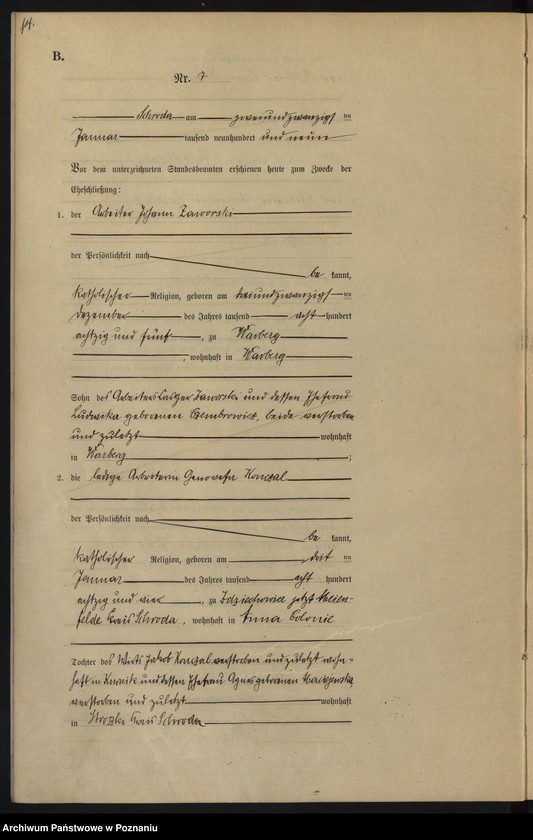 14.
B.
Nr. 7
Schroda am zweiundzwanzigsten
Januar tausend neunhundert und neun
Vor dem unterzeichneten Standesbeamten erschienen heute zum Zwecke der
Eheschließung:
1. der Arbeiter Johann Zaworski
der Persönlichkeit nach
be kannt,
katholischer Religion, geboren am dreiundzwanzigsten
Dezember des Jahres tausend acht hundert
achtzig und fünf, zu Warberg
, wohnhaft in Warberg
Sohn des Arbeiters Kasper Zaworski und dessen Ehefrau
Ludwika geborenen beide verstorben
und zuletzt wohnhaft
in Warberg;
2. die ledige Arbeiterin Genovefa
der Persönlichkeit nach
be kannt,
katholischer Religion, geboren am dritten
Januar des Jahres tausend acht hundert
achtzig und vier, zu Idziechowice jetzt
felde Kreis Schroda, wohnhaft in Anna Colonie
Tochter des Wirts Jakob verstorben und zuletzt wohn-
haft in Kurnik und dessen Ehefrau Agnes geborenen
verstorben und zuletzt wohnhaft
in Kreis Schroda
Archiwum Państwowe w Poznaniu